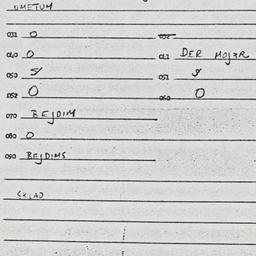 UMETUM
031 O 032
040 O 041 DER MOJER
050 S 051 S
052 O 060 O
070 BEJDIM
080 O
090 BEJDIMS